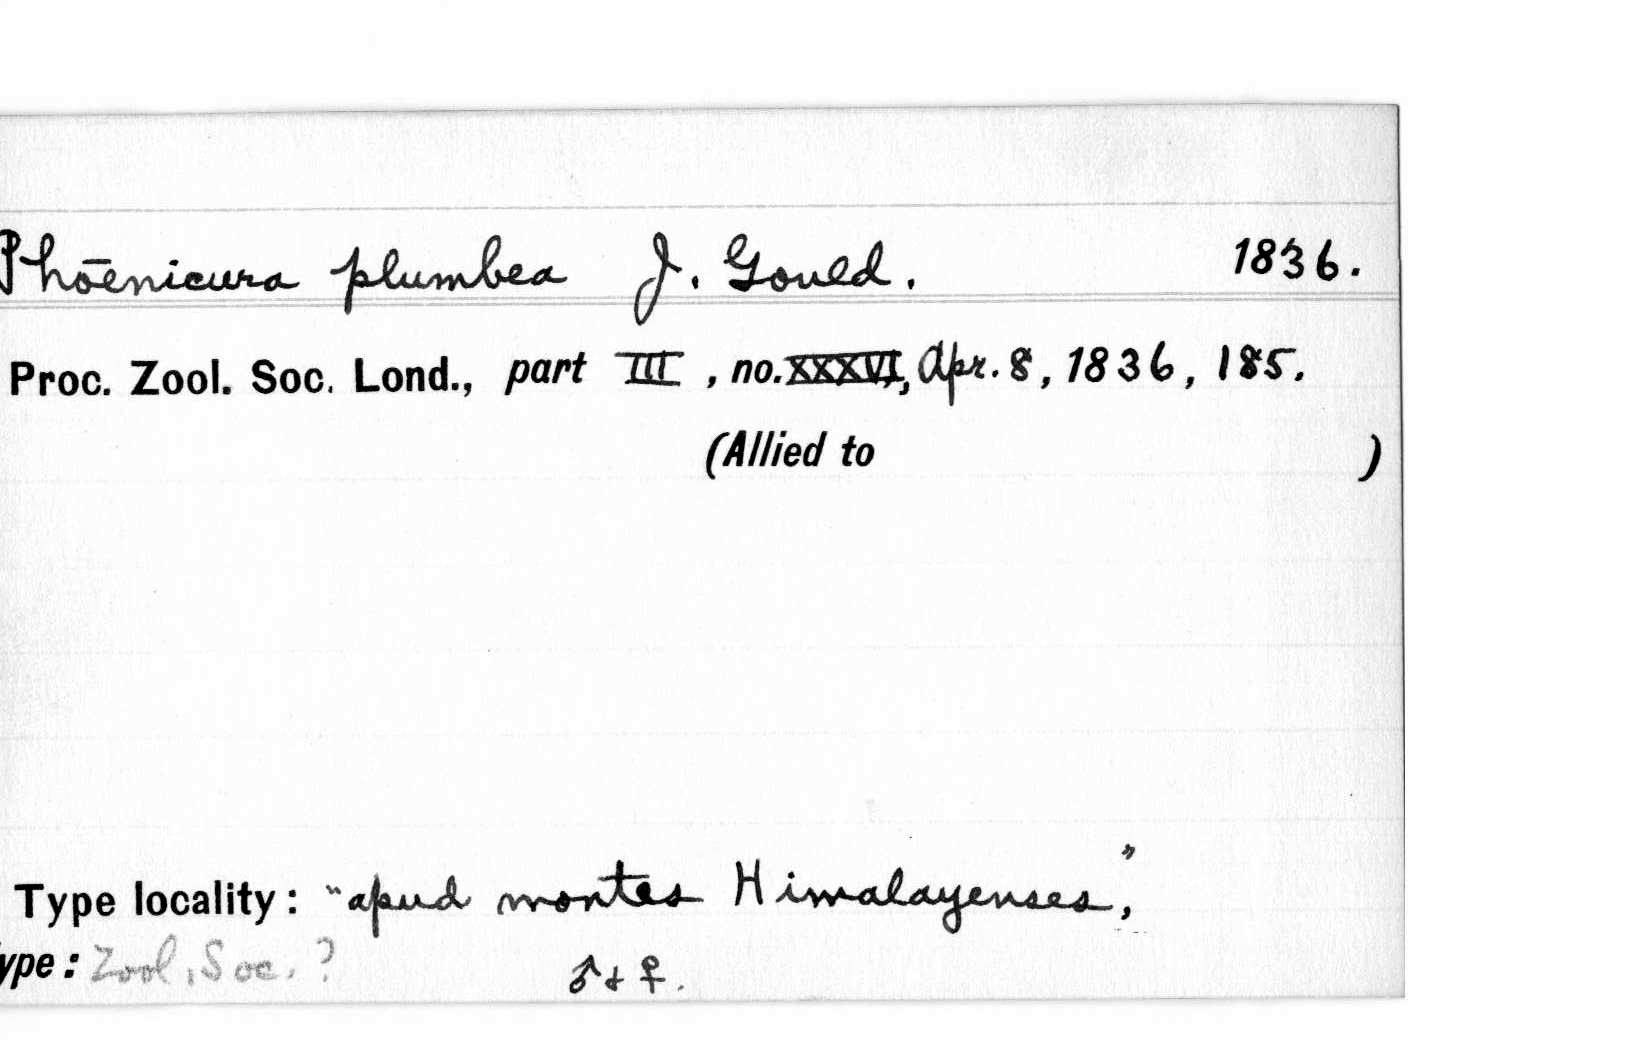 Phōenicura plumbea J. Gould. 1836.
Proc. Zool. Soc. Lond., part III, no. XXXVI, Apr. 8, 1836, 185.
(Allied to )
Type locality: "apud montes Himalayenses,"
ype: Zool. Soc. ? ♂ & ♀.